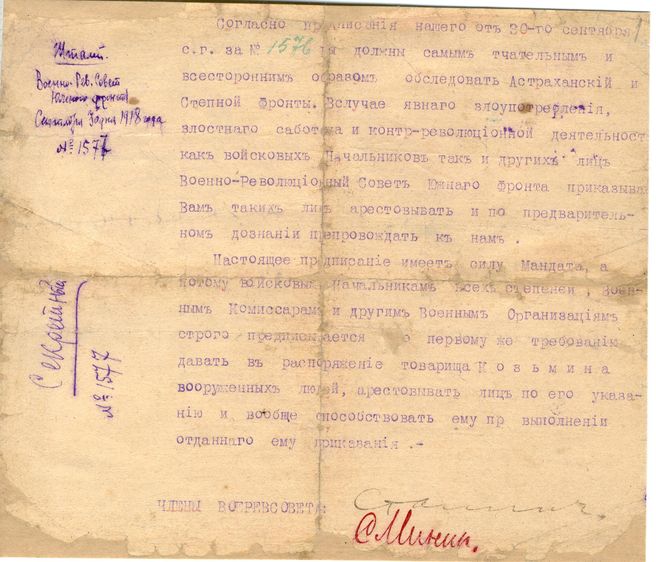 Штамп.
Военно-Рев. Совет
Южного фронта
Сентября 1918 года
№ 1577
Секретный
№ 1577
Согласно предписания нашего отъ 20-го сентября
с.г. за № 1576 должны самымъ тчательнымъ и
всестороннимъ образомъ обследовать Астраханскій и
Степной Фронты. Вслучае явнаго злоупотребленія,
влостнаго саботажа и контр-революціонной деятельност
какъ войсковыхъ Начальниковъ такъ и другихъ лицъ
Военно-Революціонный Советъ Южнаго Фронта приказыва
Вамъ такихъ лицъ арестовывать и по предваритель-
номъ дознаніи препровождать къ намъ .
Настоящее предписаніе имеетъ силу Мандата, а
потому войсковымъ Начальникамъ всехъ степеней , Воен-
нымъ Комиссарамъ и другимъ Военнымъ Организаціямъ
строго предписывается по первому же требованію
давать въ распоряженіе товарища Козьмина
вооруженныхъ людей, арестовывать лицъ по его указа-
нію и вообще способствовать ему пр выполненіи
отданнаго ему приказанія .-
ЧЛЕНЫ ВОЕРЕВСОВЕТА:
Сталин.
С Минин.